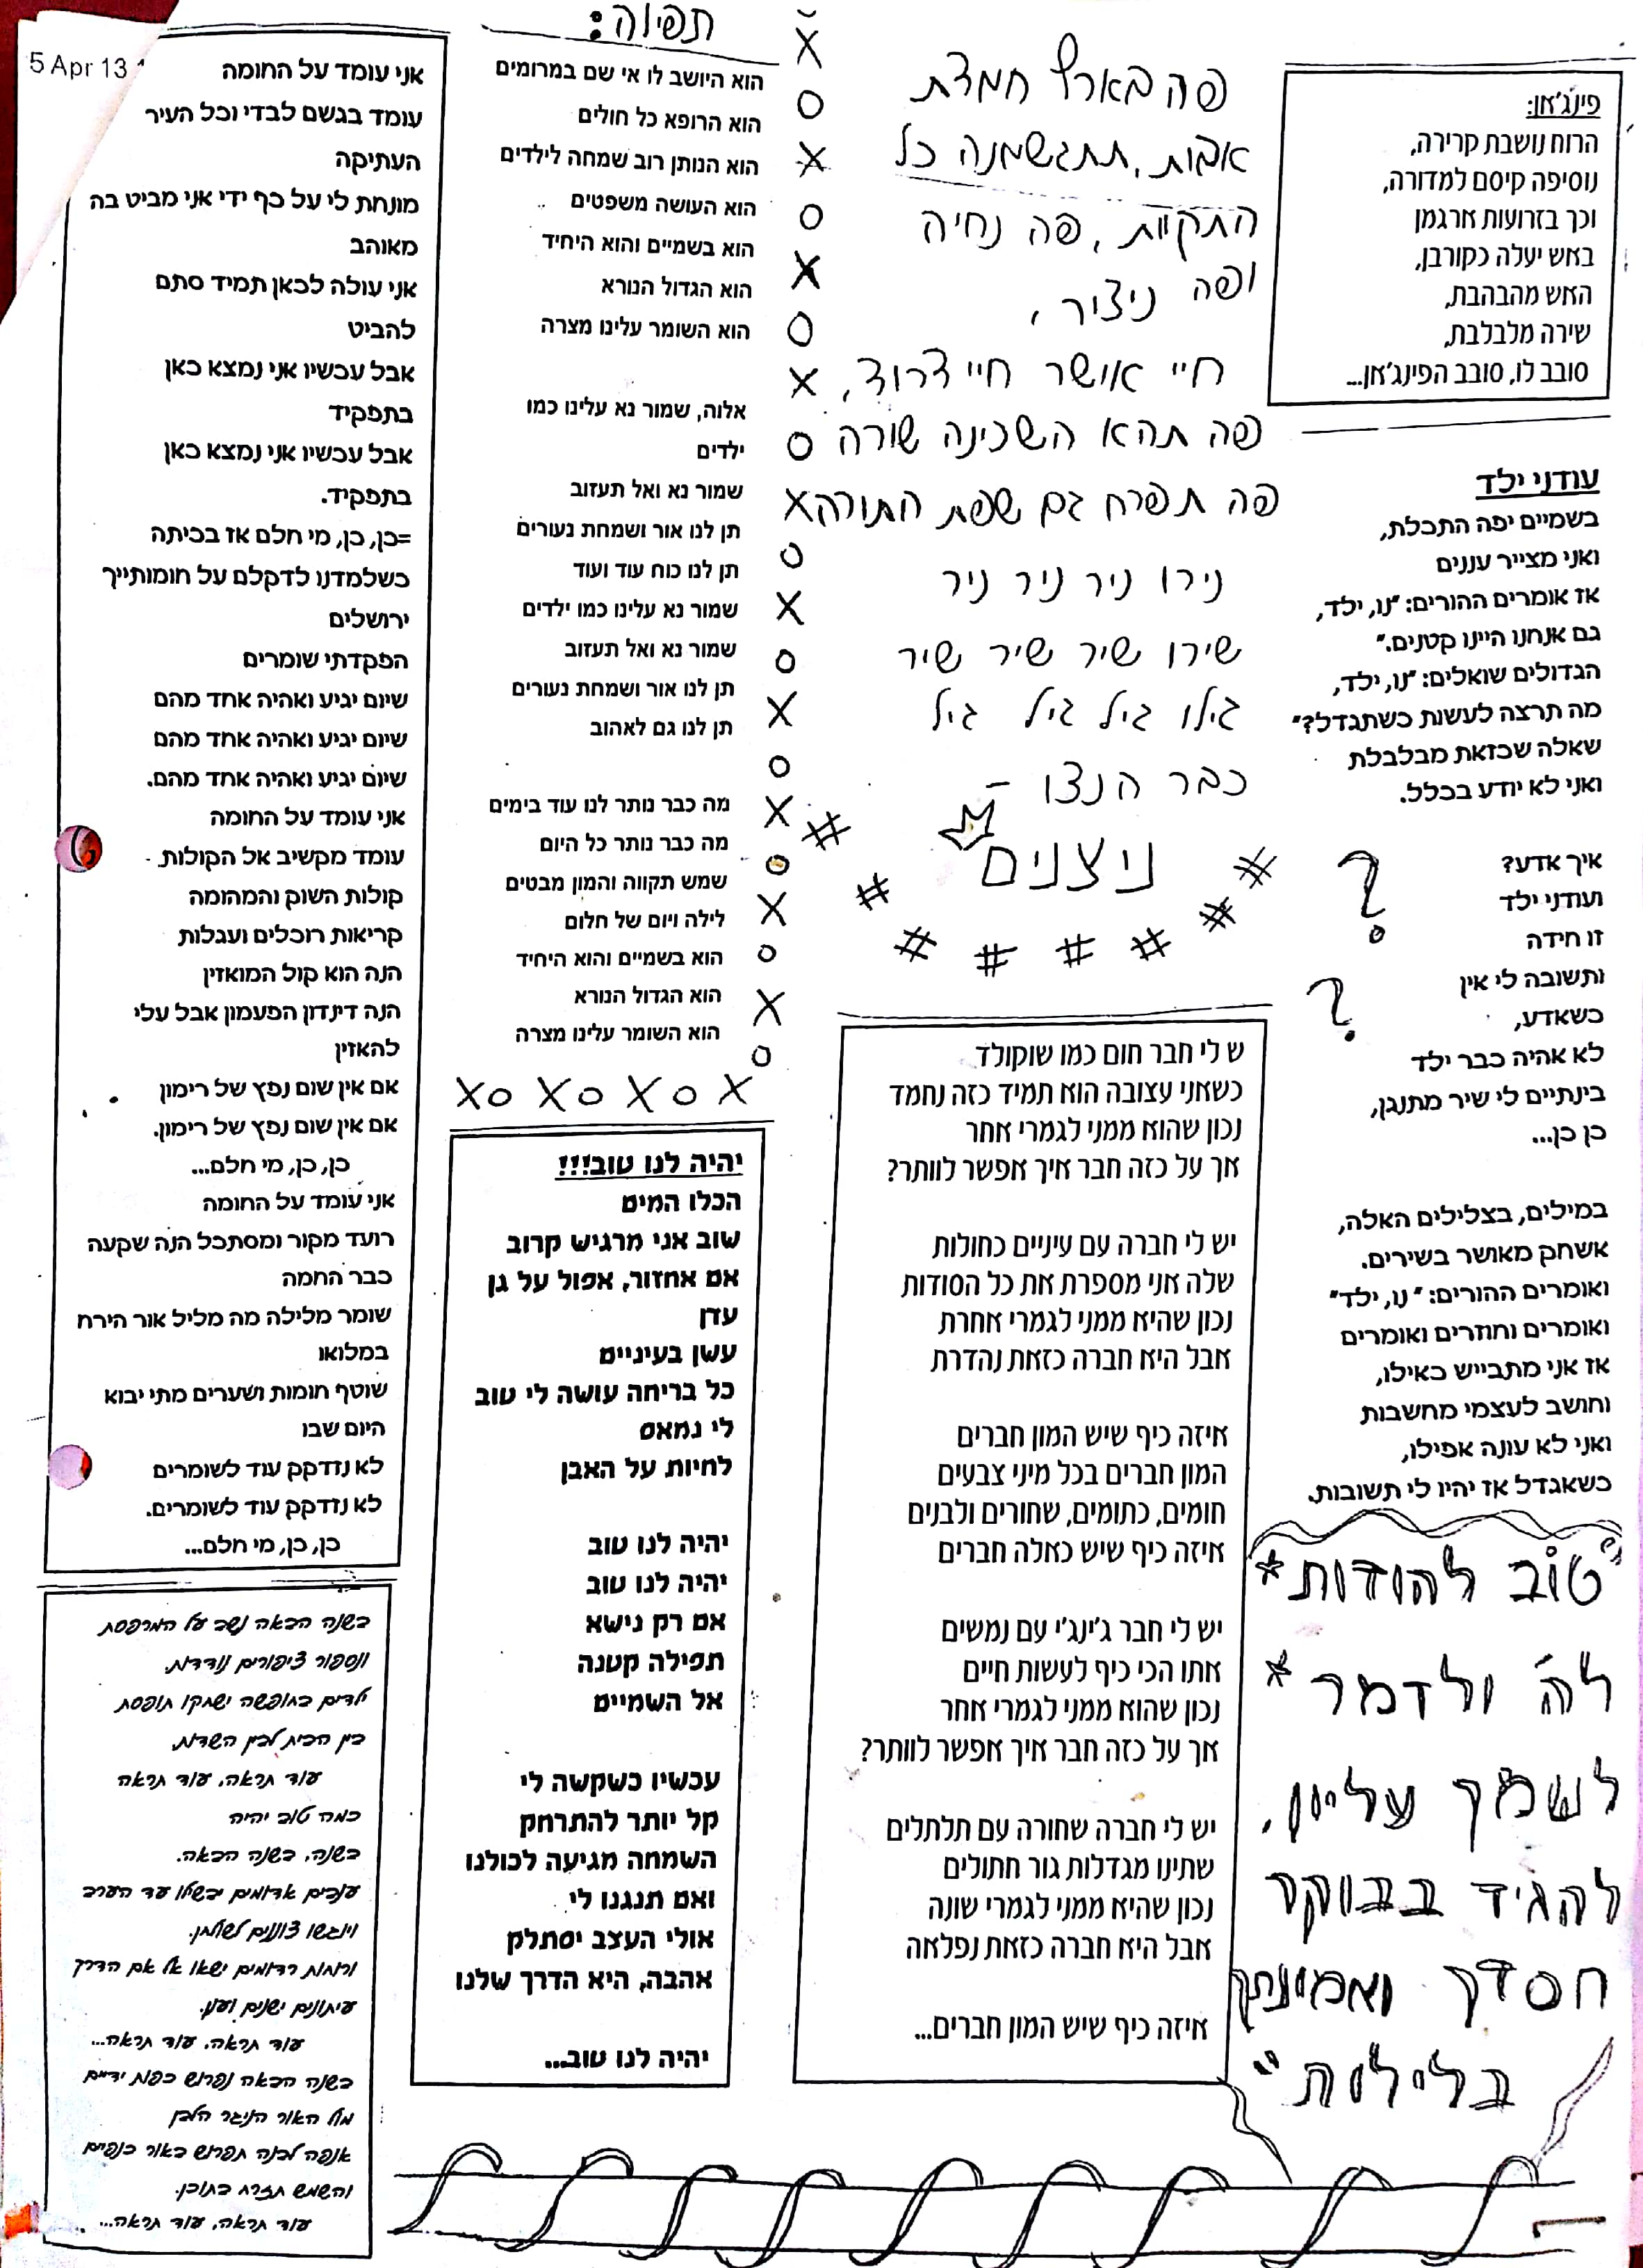 פינג'אן:
הרוח נושבת קרירה,
נוסיפה קיסם למדורה,
וכך בזרועות ארגמן
באש יעלה כקורבן,
האש מהבהבת,
שירה מלבלבת,
סובב לו, סובב הפינג'אן...
עודני ילד
בשמיים יפה התכלת,
ואני מצייר עננים
אז אומרים ההורים: "נו, ילד,
גם אנחנו היינו קטנים."
הגדולים שואלים: "נו, ילד,
מה תרצה לעשות כשתגדל?"
שאלה שכזאת מבלבלת
ואני לא יודע בכלל.
איך אדע?
ועודני ילד
זו חידה
ותשובה לי אין
כשאדע,
לא אהיה כבר ילד
בינתיים לי שיר מתנגן,
כן כן...
במילים, בצלילים האלה,
אשחק מאושר בשירים.
ואומרים ההורים: "נו, ילד"
ואומרים וחוזרים ואומרים
אז אני מתבייש כאילו,
וחושב לעצמי מחשבות
ואני לא עונה אפילו,
כשאגדל אז יהיו לי תשובות.
"טוב להודות*
לה' ולזמר*
לשמך עליון,
להגיד בבוקר
חסדך ואמונתך
בלילות"
פה בארץ חמדת
אבות, תתגשמנה כל
התקוות, פה נחיה
ופה ניצור,
חיי אושר חיי דרור,
פה תהא השכינה שורה
פה תפרח גם שפת התורה
נירו ניר ניר ניר
שירו שיר שיר שיר
גילו גיל גיל גיל
כבר הנצו -
ניצנים
ש לי חבר חום כמו שוקולד
כשאני עצובה הוא תמיד כזה נחמד
נכון שהוא ממני לגמרי אחר
אך על כזה חבר איך אפשר לוותר?
יש לי חברה עם עיניים כחולות
שלה אני מספרת את כל הסודות
נכון שהיא ממני לגמרי אחרת
אבל היא חברה כזאת נהדרת
איזה כיף שיש המון חברים
המון חברים בכל מיני צבעים
חומים, כתומים, שחורים ולבנים
איזה כיף שיש כאלה חברים
יש לי חבר ג'ינג'י עם נמשים
אתו הכי כיף לעשות חיים
נכון שהוא ממני לגמרי אחר
אך על כזה חבר איך אפשר לוותר?
יש לי חברה שחורה עם תלתלים
שתינו מגדלות גור חתולים
נכון שהיא ממני לגמרי שונה
אבל היא חברה כזאת נפלאה
איזה כיף שיש המון חברים...
תפילה:
הוא היושב לו אי שם במרומים
הוא הרופא כל חולים
הוא הנותן רוב שמחה לילדים
הוא העושה משפטים
הוא בשמיים והוא היחיד
הוא הגדול הנורא
הוא השומר עלינו מצרה
אלוה, שמור נא עלינו כמו
ילדים
שמור נא ואל תעזוב
תן לנו אור ושמחת נעורים
תן לנו כוח עוד ועוד
שמור נא עלינו כמו ילדים
שמור נא ואל תעזוב
תן לנו אור ושמחת נעורים
תן לנו גם לאהוב
מה כבר נותר לנו עוד בימים
מה כבר נותר כל היום
שמש תקווה והמון מבטים
לילה ויום של חלום
הוא בשמיים והוא היחיד
הוא הגדול הנורא
הוא השומר עלינו מצרה
יהיה לנו טוב!!!
הכלו המים
שוב אני מרגיש קרוב
אם אחזור, אפול על גן
עדן
עשן בעיניים
כל בריחה עושה לי טוב
לי נמאס
לחיות על האבן
יהיה לנו טוב
יהיה לנו טוב
אם רק נישא
תפילה קטנה
אל השמיים
עכשיו כשקשה לי
קל יותר להתרחק
השמחה מגיעה לכולנו
ואם תנגנו לי
אולי העצב יסתלק
אהבה, היא הדרך שלנו
יהיה לנו טוב...
5 Apr 13
אני עומד על החומה
עומד בגשם לבדי וכל העיר
העתיקה
מונחת לי על כף ידי אני מביט בה
מאוהב
אני עולה לכאן תמיד סתם
להביט
אבל עכשיו אני נמצא כאן
בתפקיד
אבל עכשיו אני נמצא כאן
בתפקיד.
=כן, כן, מי חלם אז בכיתה
כשלמדנו לדקלם על חומותייך
ירושלים
הפקדתי שומרים
שיום יגיע ואהיה אחד מהם
שיום יגיע ואהיה אחד מהם
שיום יגיע ואהיה אחד מהם.
אני עומד על החומה
עומד מקשיב אל הקולות.
קולות השוק והמהומה
קריאות רוכלים ועגלות
הנה הוא קול המואזין
הנה דינדון הפעמון אבל עלי
להאזין
אם אין שום נפץ של רימון
אם אין שום נפץ של רימון.
כן, כן, מי חלם...
אני עומד על החומה
רועד מקור ומסתכל הנה שקעה
כבר החמה
שומר מלילה מה מליל אור הירח
במלואו
שוטף חומות ושערים מתי יבוא
היום שבו
לא נזדקק עוד לשומרים
לא נזדקק עוד לשומרים.
כן, כן, מי חלם...
בשנה הבאה נשב על המרפסת
ונספור ציפורים נודדות.
ילדים בחופשה ישחקו תופסת
בין הבית לבין השדות.
עוד תראה, עוד תראה
כמה טוב יהיה
בשנה, בשנה הבאה.
ענבים אדומים יבשילו עד הערב
ויוגשו צוננים לשולחן.
ורוחות רדומים ישאו אל אם הדרך
עיתונים ישנים וענן.
עוד תראה, עוד תראה...
בשנה הבאה נפרוש כפות ידיים
מול האור הניגר הלבן
אנפה לבנה תפרוש כאור כנפיים
והשמש תזרח בתוכן.
עוד תראה, עוד תראה...